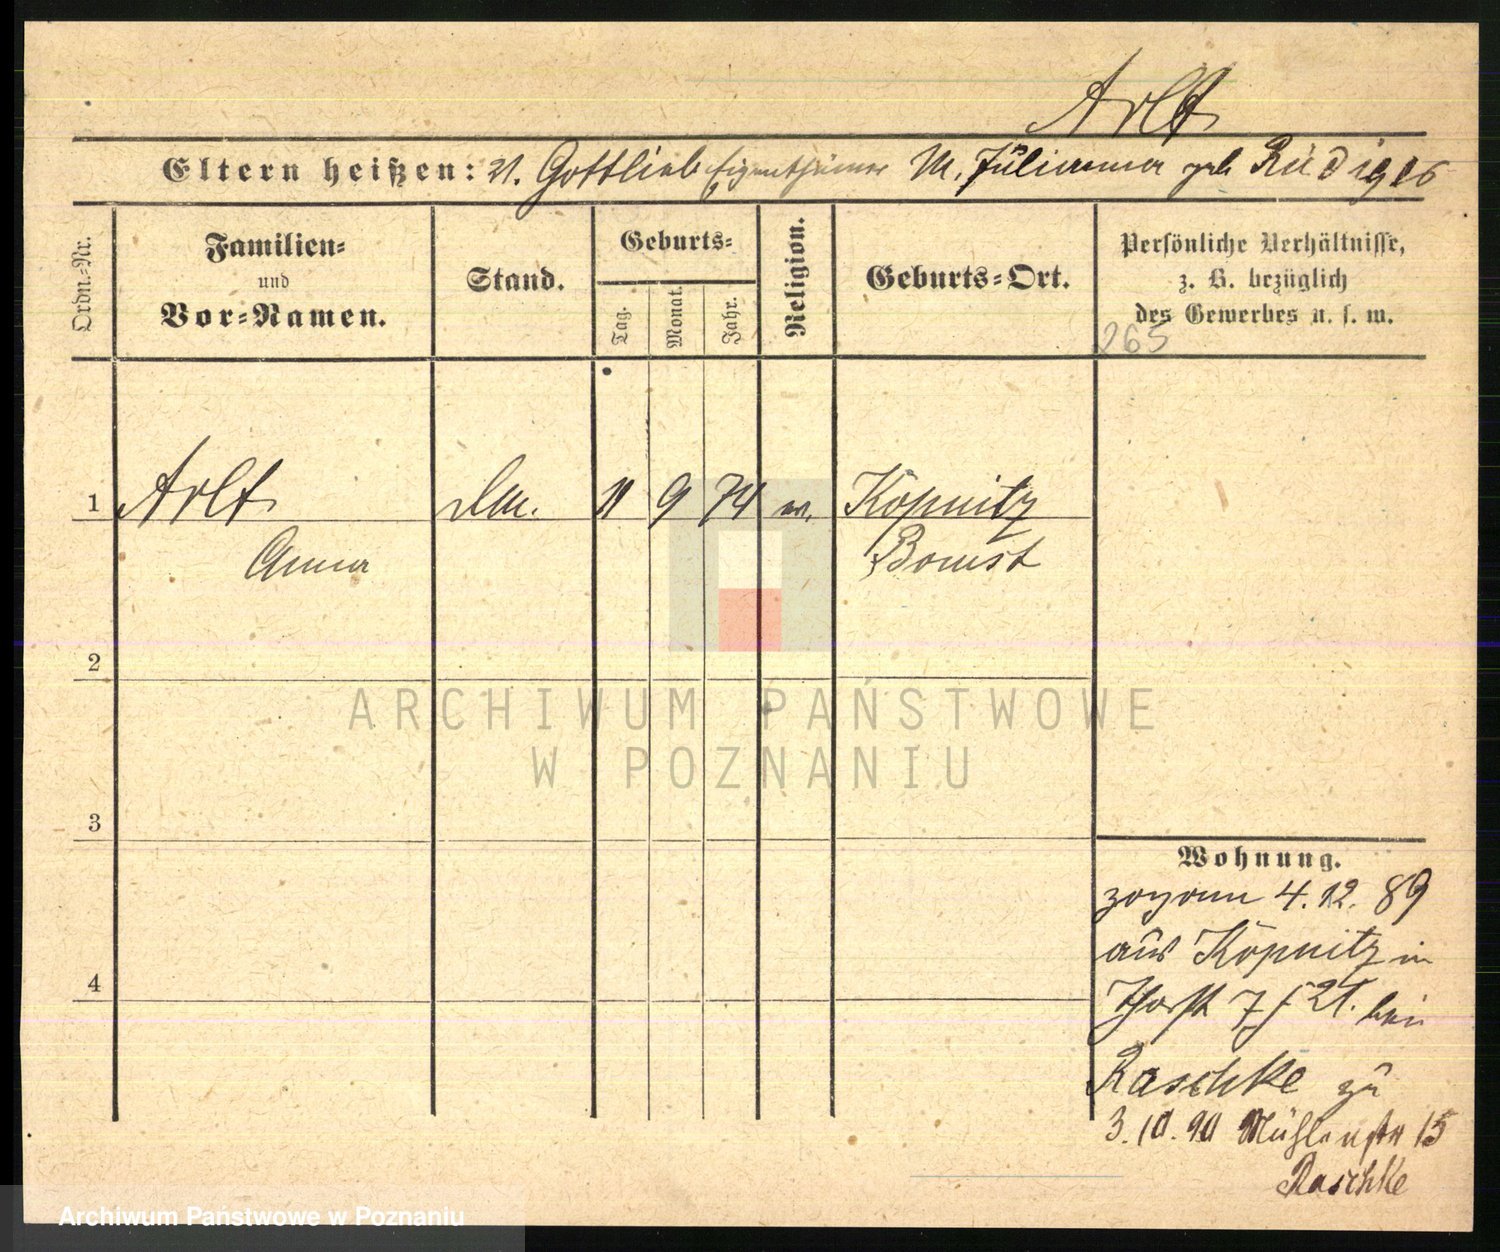 Arlt
Eltern heißen: V. Gottlieb Eigenthümer M. Julianna geb Rüdiger
Ordn.-Nr.
Familien-
und
Vor-Namen.
Stand.
Geburts-
Tag.
Monat.
Jahr.
Religion.
Geburts-Ort.
Persönliche Verhältnisse,
z. B. bezüglich
des Gewerbes u. s. w.
265
1 Arlt 11 9 74 ev. Köpnitz
Anna Bomst
2
ARCHIWUM PAŃSTWOWE
W POZNANIU
3
Wohnung.
zogen 4.12.89
aus Köpnitz in
4
bei
Raschke zu
3.10.90 Mühlenstr 15
Raschke
Archiwum Państwowe w Poznaniu